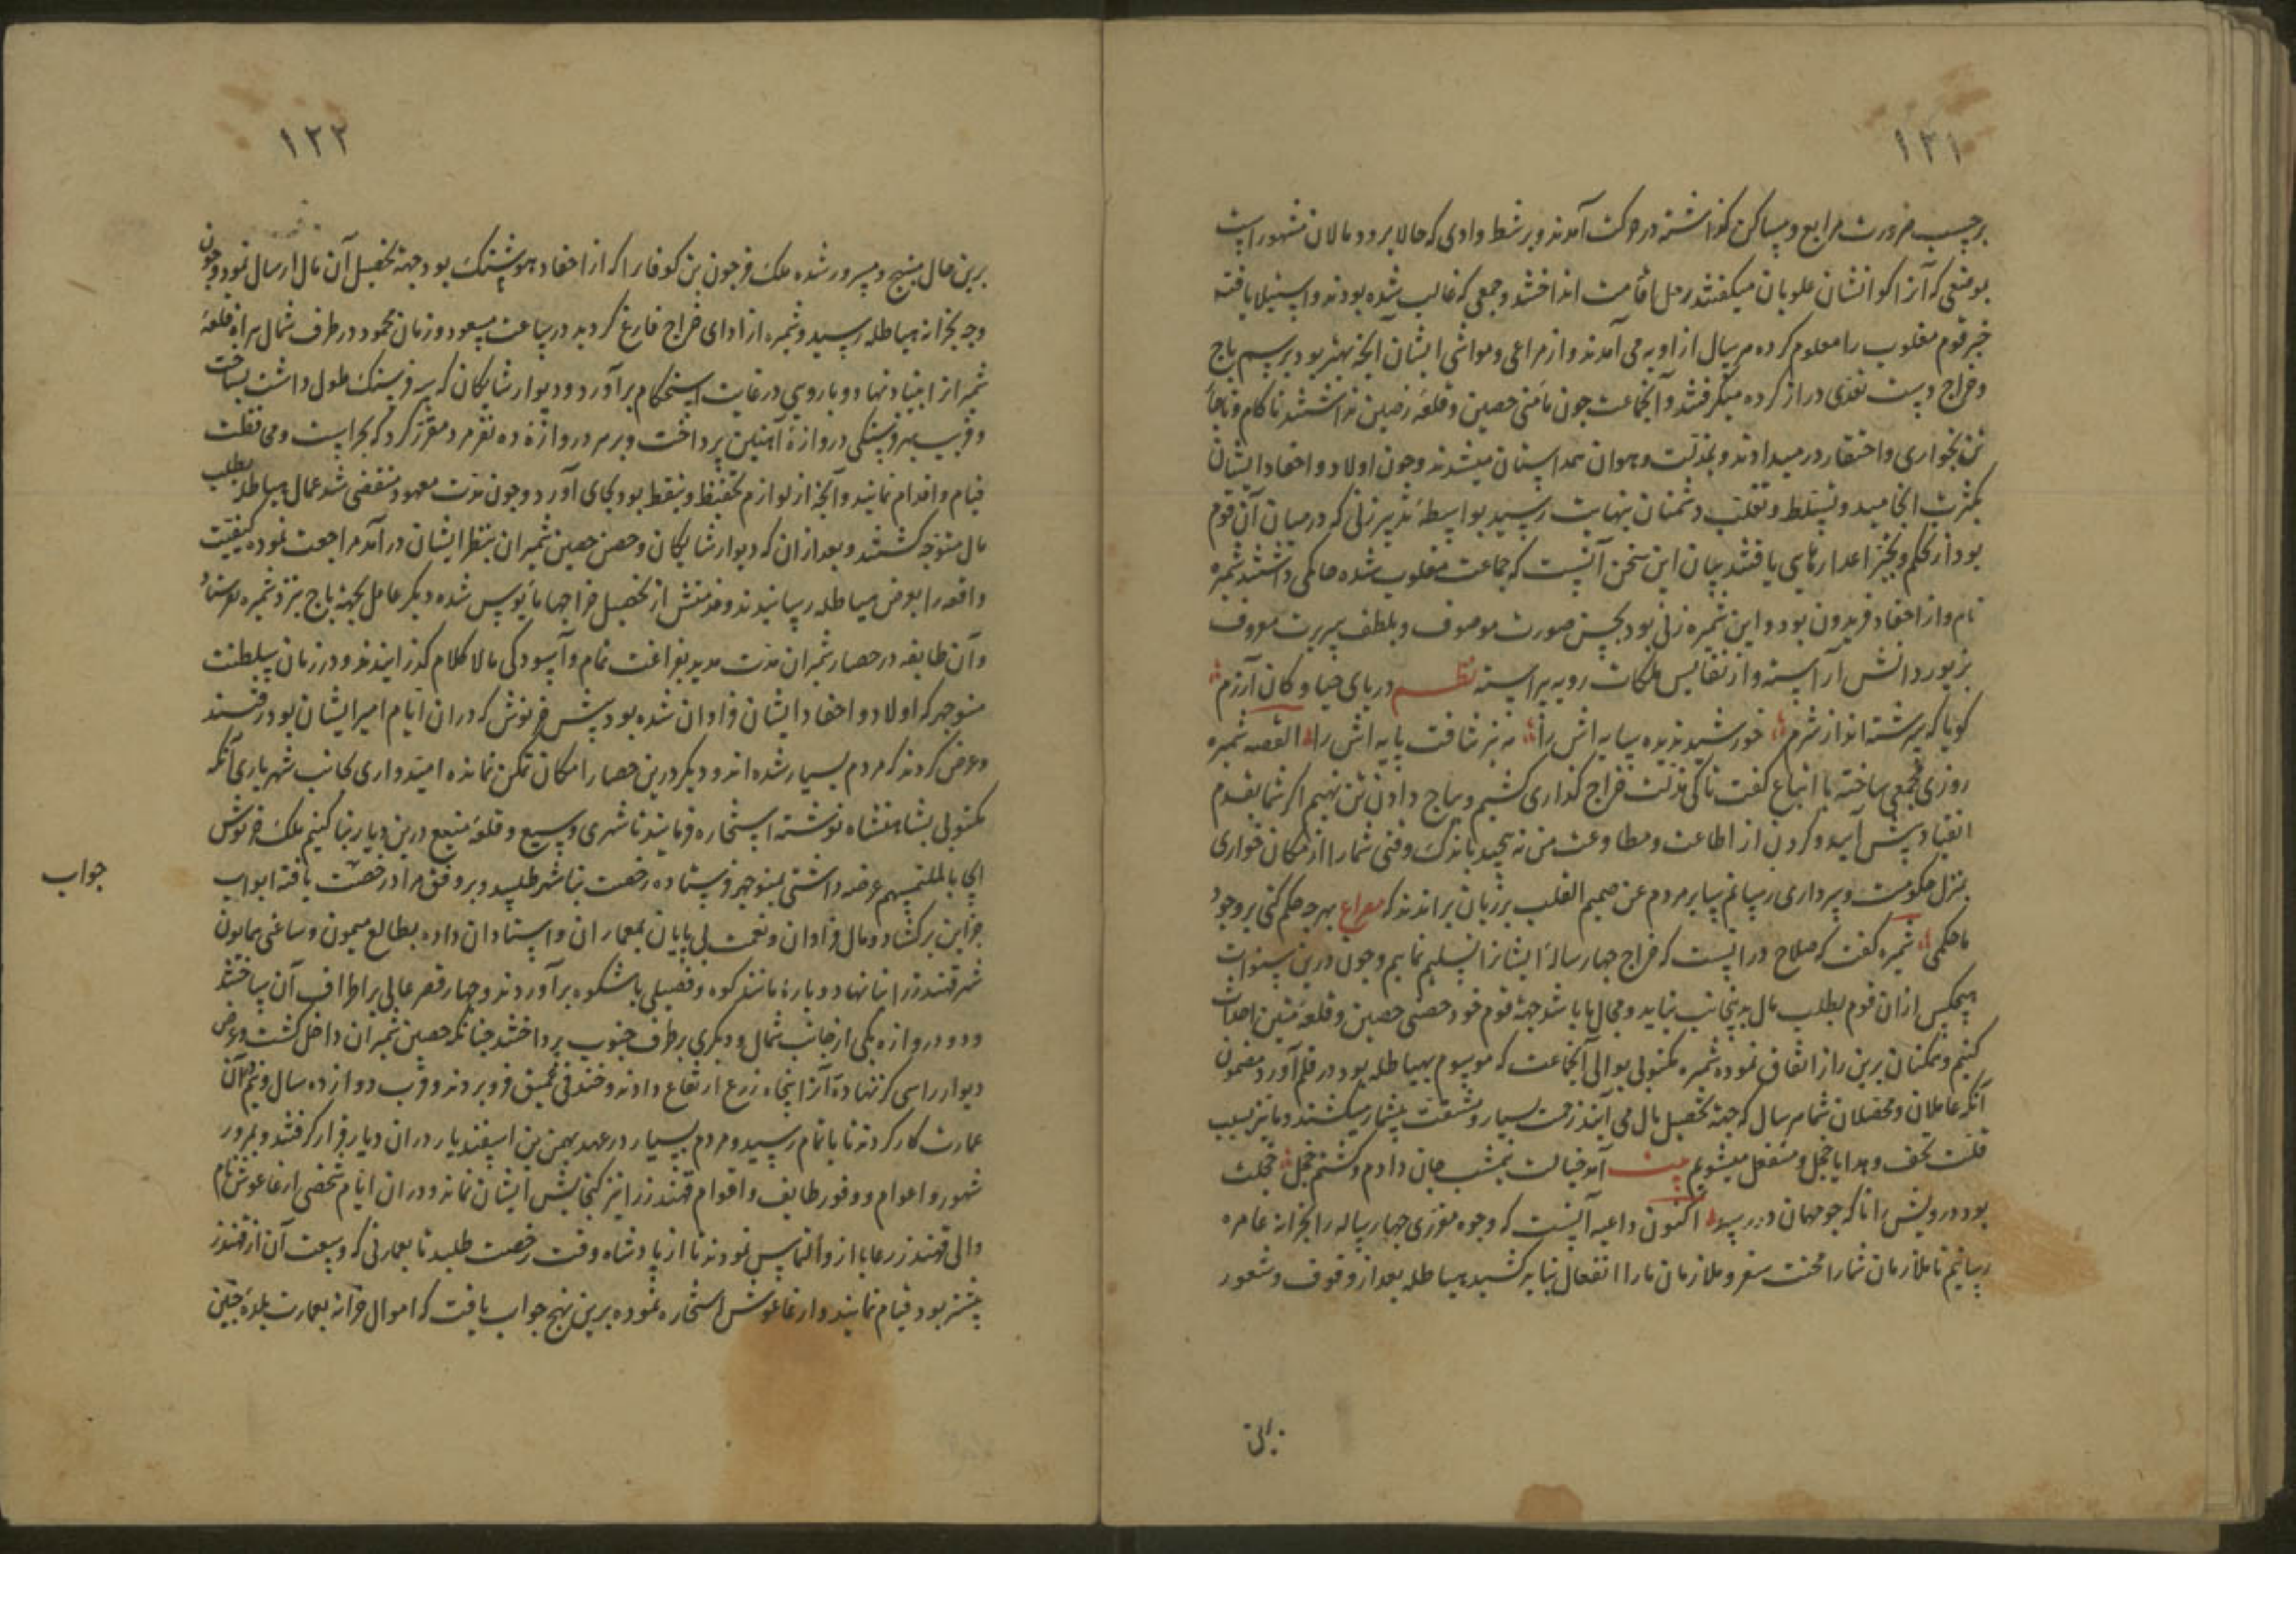 ۱۲۱
برحسب ضرورت مرابع و مساکن گذاشته در حرکت آمدند و بر شط وادی که حالا برود مالان مشهور است
بموضعی که آنرا کواشان علویان میگفتند رحل اقامت انداختند و جمعی که غالب شده بودند و استیلا یافته
خبر قوم مغلوب را معلوم کرده هر سال از اوبه می آمدند و از مراعی و مواشی ایشان آنچه بهتر بود برسم باج
و خراج دست تعدی دراز کرده میگرفتند و آنجماعت چون مأمنی حصین و قلعه رصین نداشتند ناکام و ناچار
تن بخواری و احتقار در میدادند و بمذلت و هوان همداستان میشدند و چون اولاد و احفاد ایشان
بکثرت انجامید و تسلط و تغلب دشمنان بنهایت رسید بواسطه تدبیر زنی که در میان آن قوم
بود از تحکم و تجبر اعدا رهایی یافتند بیان این سخن آنست که جماعت مغلوب شده حاکمی داشتند شمیره
نام و از احفاد فریدون بود و این شمیره زنی بود بحسن صورت موصوف و بلطف سیرت معروف
بزیور دانش آراسته و از نفایس ملکات رویه پیراسته نظـــم دریای حیا و کان آزرم
گویا که سرشته اند از شرم خورشید ندیده سایه اش را مه نیز نیافت پایه اش را القصه شمیره
روزی مجمعی ساخته با اتباع گفت تا کی مذلت خراج گذاری کشیم و بباج دادن تن نهیم اگر شما بقدم
انقیاد پیش آیید و گردن از اطاعت و مطاوعت من نه پیچید باندک وقتی شما را از مکان خواری
بمنزل حکومت و سرداری رسانم پیا بر مردم عن صمیم القلب بر زبان براندند که مصراع بهرچه حکم کنی بر وجود
ما حکمی شمیره گفت که صلاح درانست که خراج چهارساله ایشانرا تسلیم نماییم و چون درین سنوات
هیچکس ازان قوم بطلب مال بدینجانب نیاید و مجال ما باشد جهة قوم خود حصنی حصین و قلعه متین احداث
کنیم و همکنان برین راز اتفاق نموده شمیره مکتوبی بوالی آنجماعت که موسوم بهیاطله بود در قلم آورد مضمون
آنکه عاملان و محصلان شما هر سال که جهة تحصیل مال می آیند زحمت بسیار و مشقت بیشمار میکشند و ما نیز بسبب
قلت تحف و هدایا خجل و منفعل میشویم بیت آمد خیالت نیمشب جان دادم و گشتم خجل خجلت
بود درویش را ناکه چو مهمان در رسد اکنون داعیه آنست که وجوه مقرری چهارساله را بخزانه عامره
رسانیم تا ملازمان شما را محنت سفر و ملازمان ما را انفعال نباید کشید هیاطله بعد از وقوف و شعور
۱۲۲
برین حال مبتهج و مسرور شده ملک فرجون بن کوفار را که از احفاد هوشنگ بود جهة تحصیل آن مال ارسال نمود و چون
وجه بخزانه هیاطله رسید و شمیره از ادای خراج فارغ گردید در ساعت مسعود و زمان محمود در طرف شمال هراة قلعه
شمیران بنیاد نهاد و باروی در غایت استحکام برآورد و دیوار شایکان که سه فرسنگ طول داشت بساخت
و قریب بهر فرسنگی دروازه آهنین پرداخت و بر هر دروازه ده نفر مرد مقرر کرد که بحراست و محافظت
قیام و اقدام نمایند و آنچه از لوازم تحفظ و تیقظ بود بجای آورد و چون مدت معهود منقضی شد عمال هیاطله بطلب
مال متوجه گشتند و بعد ازان که دیوار شایکان و حصن حصین شمیران بنظر ایشان درآمد مراجعت نموده کیفیت
واقعه را بعرض هیاطله رسانیدند و من بعد از تحصیل خراجها مأیوس شده دیگر عامل بجهة باج نزد شمیره نفرستاد
و آن طایفه در حصار شمیران مدت مدید بفراغت تمام و آسودگی مالا کلام گذرانیدند و در زمان سلطنت
منوچهر که اولاد و احفاد ایشان فراوان شده بود پیش خرنوش که دران ایام امیر ایشان بود رفتند
و عرض کردند که مردم بسیار شده اند و دیگر درین حصار امکان تمکن نمانده امیدواری بجانب شهریاری آنکه
مکتوبی بشاهنشاه نوشته استخاره فرمایند تا شهری وسیع و قلعه منیع درین دیار بنا کنیم ملک خرنوش
انجاحا لملتمسهم عرضه داشتی بمنوچهر فرستاده رخصت بنا شهر طلبید و بر وفق مراد رخصت یافته ابواب
خزاین برگشاد و مال فراوان و نعمت بی پایان بمعماران و استادان داده بطالع میمون و ساعتی همایون
شهر قهندز را بنا نهاد و بارۀ مانند کوه و فصیلی باشکوه برآوردند و چهار قصر عالی بر اطراف آن ساختند
و دو دروازه یکی از جانب شمال و دیگری بر طرف جنوب پرداختند چنانکه حصین شمیران داخل گشت و عرض
دیوار را سی گز نهاده آنرا پنجاه زرع ارتفاع دادند و خندقی عمیق فرو بردند و قرب دوازده سال و نیم در آن
عمارت کار کردند تا باتمام رسید و مردم بسیار در عهد بهمن بن اسفندیار دران دیار قرار گرفتند و بمرور
شهور و اعوام و وفور طایف و اقوام قهندز را نیز گنجایش ایشان نماند و دران ایام شخصی ارغاغوش نام
والی قهندز رعایا ازو التماس نمودند تا از پادشاه وقت رخصت طلبد تا بعمارتی که وسعت آن از قهندز
بیشتر بود قیام نمایند و ارغاغوش استخاره نموده برین نهج جواب یافت که اموال خزانه بعمارت بلدۀ چنین
جواب